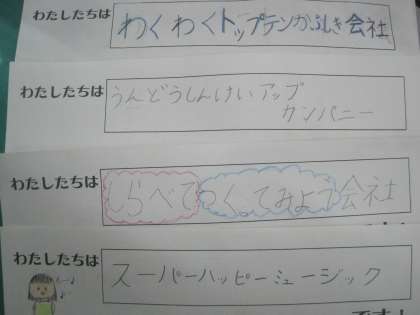 わたしたちは
わくわくトップテンかぶしき会社
わたしたちは
うんどうしんけいアップ
カンパニー
わたしたちは
しらべてつくってみよう会社
わたしたちは
スーパーハッピーミュージック
です！